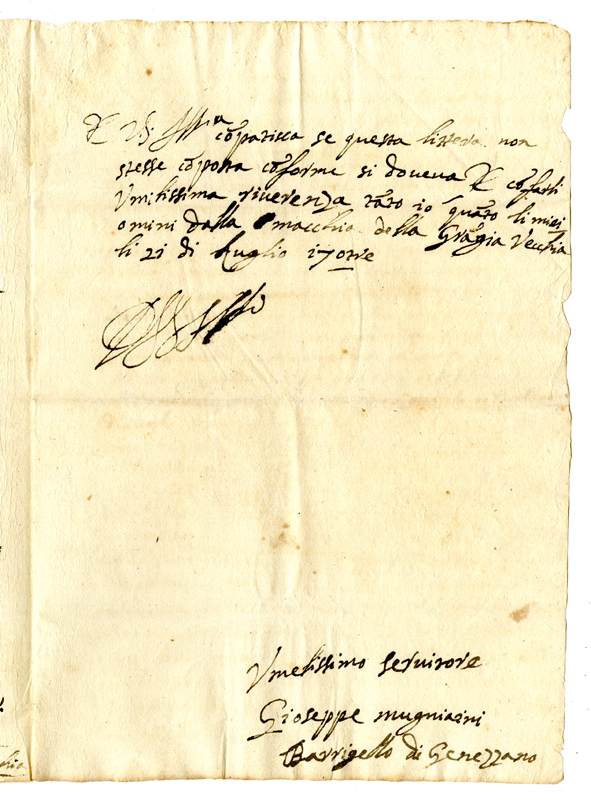 E VS: Ill.ma cõpatisca se questa littera non
stesse cõposta cõforme si doveva E cõ farli
Vmilissima riverenza tãto io quãto li miei
omini dalla macchia della Grãgia Vecchia
li 21 di Luglio
Vmelissimo servitore
Gioseppe mugniaini
Barrigello di Genezzano